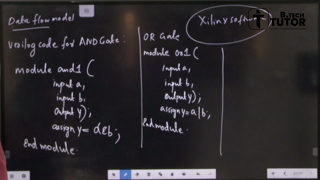 Data flow model
Verilog code for AND Gate:
module and1 (
input a,
input b,
output y);
assign y = a&b;
endmodule.
OR Gate
module or1 (
input a,
input b,
output y);
assign y = a|b;
Endmodule.
Xilinx software
B.TECH
TUTOR